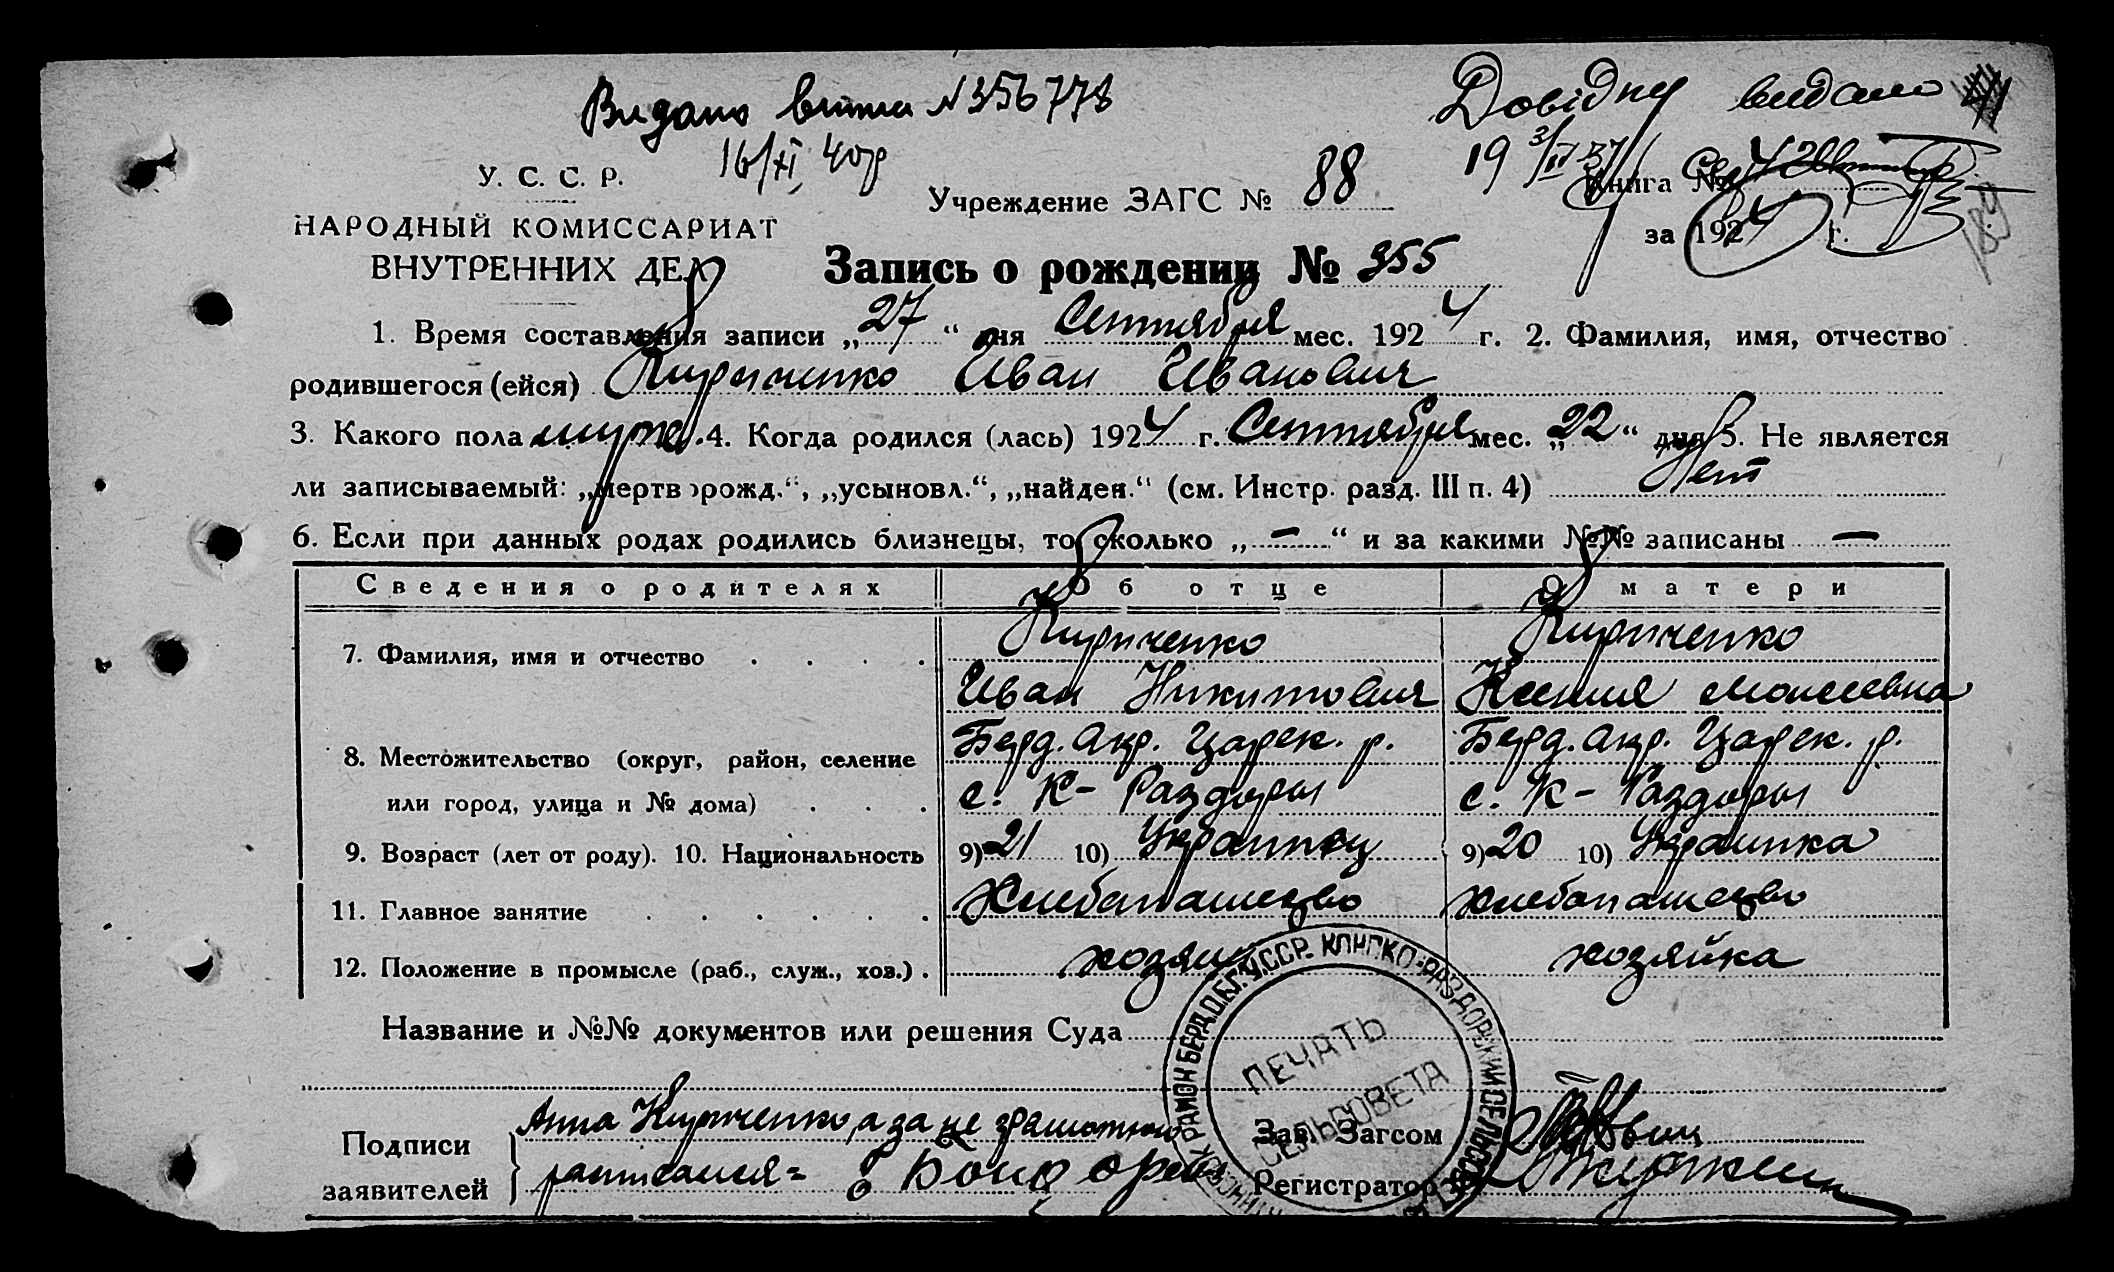 Видано витяг №356778
Довідку видано
16/XI, 40р
19 3/IV 37
У. С. С. Р.
Учреждение ЗАГС № 88
Книга №
НАРОДНЫЙ КОМИССАРИАТ
за 1924 г.
ВНУТРЕННИХ ДЕЛ
Запись о рождении № 355
1. Время составления записи „27“ дня Сентября мес. 1924 г. 2. Фамилия, имя, отчество
родившегося (ейся) Кириченко Иван Иванович
3. Какого пола мужс. 4. Когда родился (лась) 1924 г. Сентября мес. „22“ дня 5. Не является
ли записываемый: „мертворожд.“, „усыновл.“, „найден.“ (см. Инстр. разд. III п. 4) Нет
6. Если при данных родах родились близнецы, то сколько „—“ и за какими №№ записаны —
Сведения о родителях Об отце О матери
7. Фамилия, имя и отчество Кириченко Кириченко
Иван Никитович Ксения Моисеевна
8. Местожительство (округ, район, селение Берд. окр. Царек. р. Берд. окр. Царек. р.
или город, улица и № дома) с. К-Раздоры с. К-Раздоры
9. Возраст (лет от роду). 10. Национальность 9) 21 10) Украинец 9) 20 10) Украинка
11. Главное занятие Хлебопашество хлебопашество
12. Положение в промысле (раб., служ., хоз.) хозяин хозяйка
Название и №№ документов или решения Суда
Подписи заявителей
Анна Кириченко, а за не грамотную
расписался
Зав. Загсом
Регистратор
РАЙОН БЕРД.ОКГ. У.ССР. КОНСКО-РАЗДОРСКИЙ СЕЛЬСОВЕТ
ПЕЧАТЬ
СЕЛЬСОВЕТА